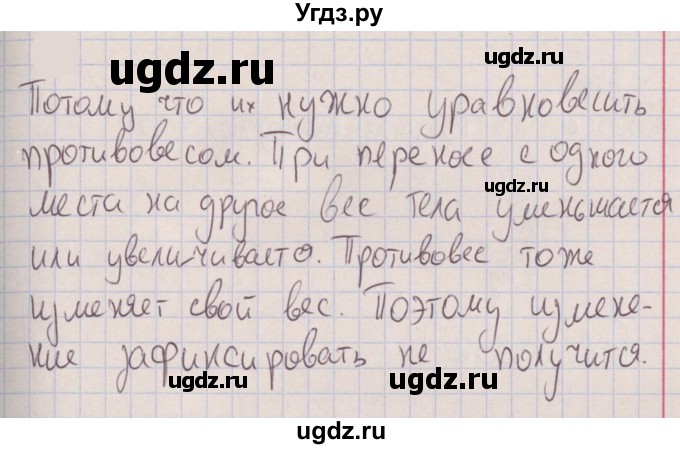 Угдз.ру
ugdz.ru
ugdz.ru
Потому что их нужно уравновесить
противовесом. При переносе с одного
ugdz.ru
места на другое вес тела уменьшается
или увеличивается. Противовес тоже
изменяет свой вес. Поэтому измене-
ние зафиксировать не получится.
ugdz.ru
ugdz.ru
ugdz.ru